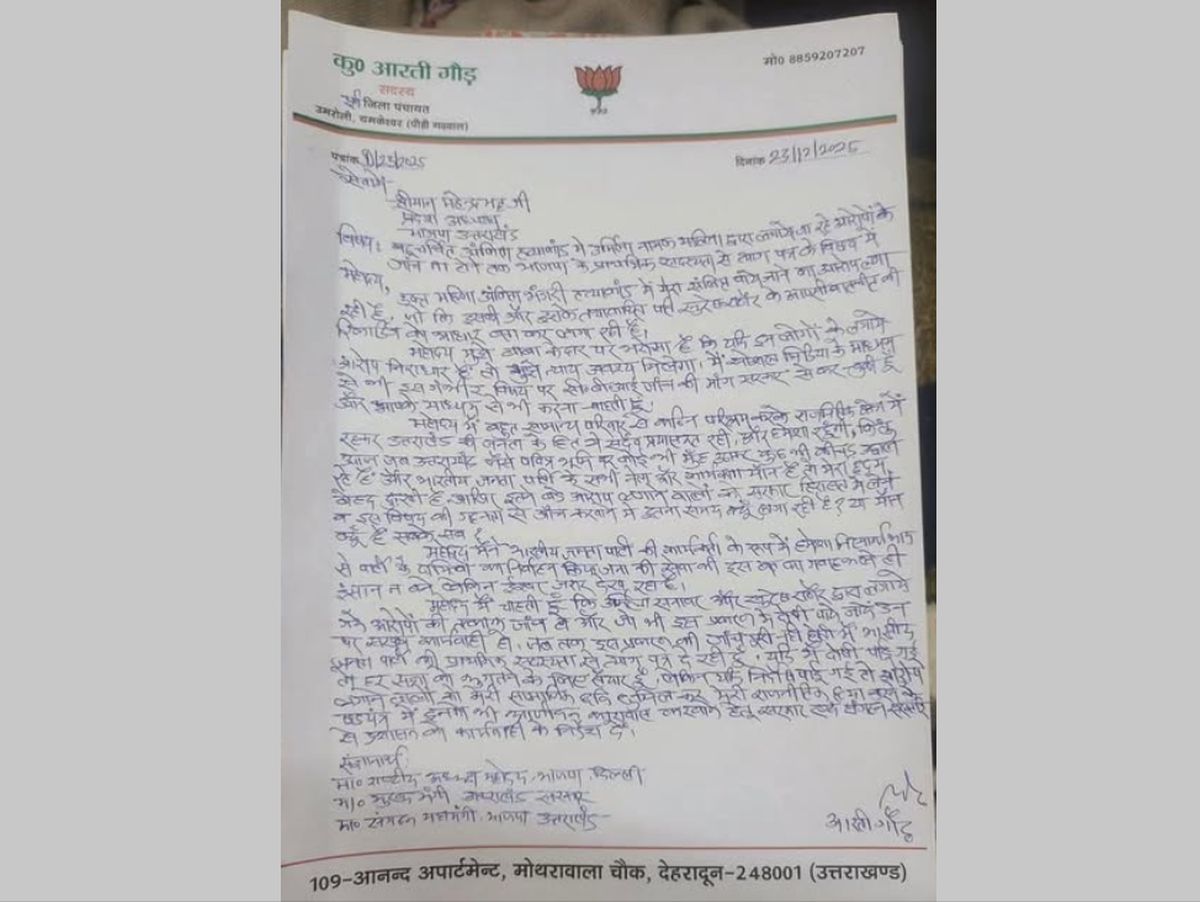 कु० आरती गौड़
सदस्य
पूर्व जिला पंचायत
उमरोली, यमकेश्वर (पौड़ी गढ़वाल)
मो० 8859207207
पत्रांक
दिनांक 23/12/2025
सेवा में
श्रीमान महेन्द्र भट्ट जी
प्रदेश अध्यक्ष
भाजपा उत्तराखंड
विषय: बहुचर्चित अंकिता हत्याकांड में उर्मिला नामक महिला द्वारा लगाये जा रहे आरोपों के
जांच ना होने तक भाजपा के प्राथमिक सदस्यता से त्याग पत्र के विषय में
महोदय,
उक्त महिला अंकिता भंडारी हत्याकांड में मेरा संलिप्त पाये जाने का आरोप लगा
रही है, जो कि इसकी और इसके तथाकथित पति सुरेश राठौर के आपसी बातचीत की
रिकॉर्डिंग को आधार बना कर लगा रही है।
महोदय मुझे बाबा केदार पर भरोसा है कि यदि इन लोगों के लगाये
आरोप निराधार हैं तो मुझे न्याय अवश्य मिलेगा। मैं सोशल मिडिया के माध्यम
से भी इस गंभीर विषय पर सी०बी०आई जांच की मांग सरकार से कर चुकी हूं
और आपके माध्यम से भी करना चाहती हूं।
महोदय मैं बहुत सामान्य परिवार से कठिन परिश्रम करके राजनितिक क्षेत्र में
रहकर उत्तराखंड की जनता के हित में सदैव प्रयासरत रही, और हमेशा रहूंगी, किंतु
आज जब उत्तराखंड जैसे पवित्र भूमि पर कोई भी मुंह उठाकर कुछ भी कीचड़ उछाल
रहे हैं और भारतीय जनता पार्टी के सभी नेता और कार्यकर्ता मौन हैं तो मेरा हृदय
बेहद दुखी है, आखिर इतने बड़े आरोप लगाने वालों को सरकार हिरासत में लेने
व इस विषय की गहनता से जांच करवाने में इतना समय क्यूं लगा रही है? या मौन
क्यूं हैं सबके सब?
महोदय मैंने भारतीय जनता पार्टी की कार्यकर्ता के रूप में हमेशा निस्वार्थ भाव
से पार्टी के दायित्वों का निर्वहन किया जनता की सेवा की इस बात का गवाह भले ही
इंसान न बने लेकिन ईश्वर जरूर देख रहा है।
महोदय मैं चाहती हूं कि उर्मिला सनावर और सुरेश राठौर द्वारा लगाये
गये आरोपों की तत्काल जांच हो और जो भी इस प्रकरण में दोषी पाये जायें उन
पर सख्त कार्यवाही हो, जब तक इस प्रकरण की जांच पूरी नहीं होती मैं भारतीय
जनता पार्टी की प्राथमिक सदस्यता से त्याग पत्र दे रही हूं, यदि मैं दोषी पाई गई
तो हर सजा को भुगतने के लिए तैयार हूं, लेकिन यदि निर्दोष पाई गई तो आरोप
लगाने वालों को मेरी सामाजिक छवि धूमिल कर मेरी राजनीतिक हत्या करने के
षडयंत्र में इनको भी आजीवन कारावास करवाने हेतु सरकार एवं संगठन सरकार
से प्रशासन को कार्यवाही के निर्देश दें।
मा० राष्ट्रीय अध्यक्ष महोदय भाजपा दिल्ली
मा० मुख्य मंत्री उत्तराखंड सरकार
मा० संगठन महामंत्री भाजपा उत्तराखंड
आरती गौड़
109-आनन्द अपार्टमेन्ट, मोथरावाला चौक, देहरादून-248001 (उत्तराखण्ड)